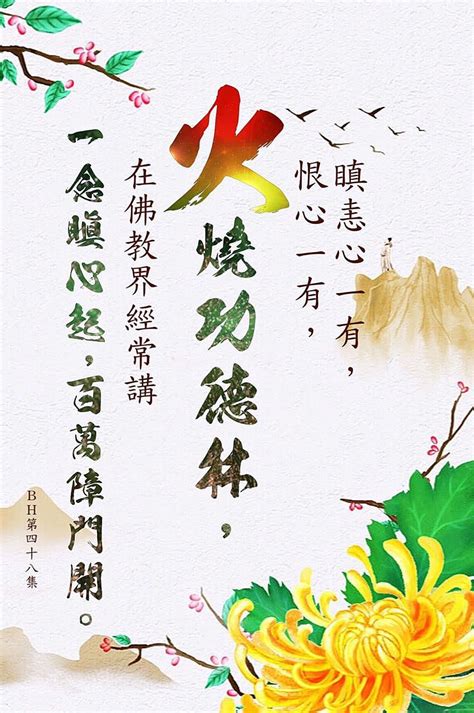 瞋恚心一有，
恨心一有，
火燒功德林，
在佛教界經常講
一念瞋心起，百萬障門開。
BH第四十八集